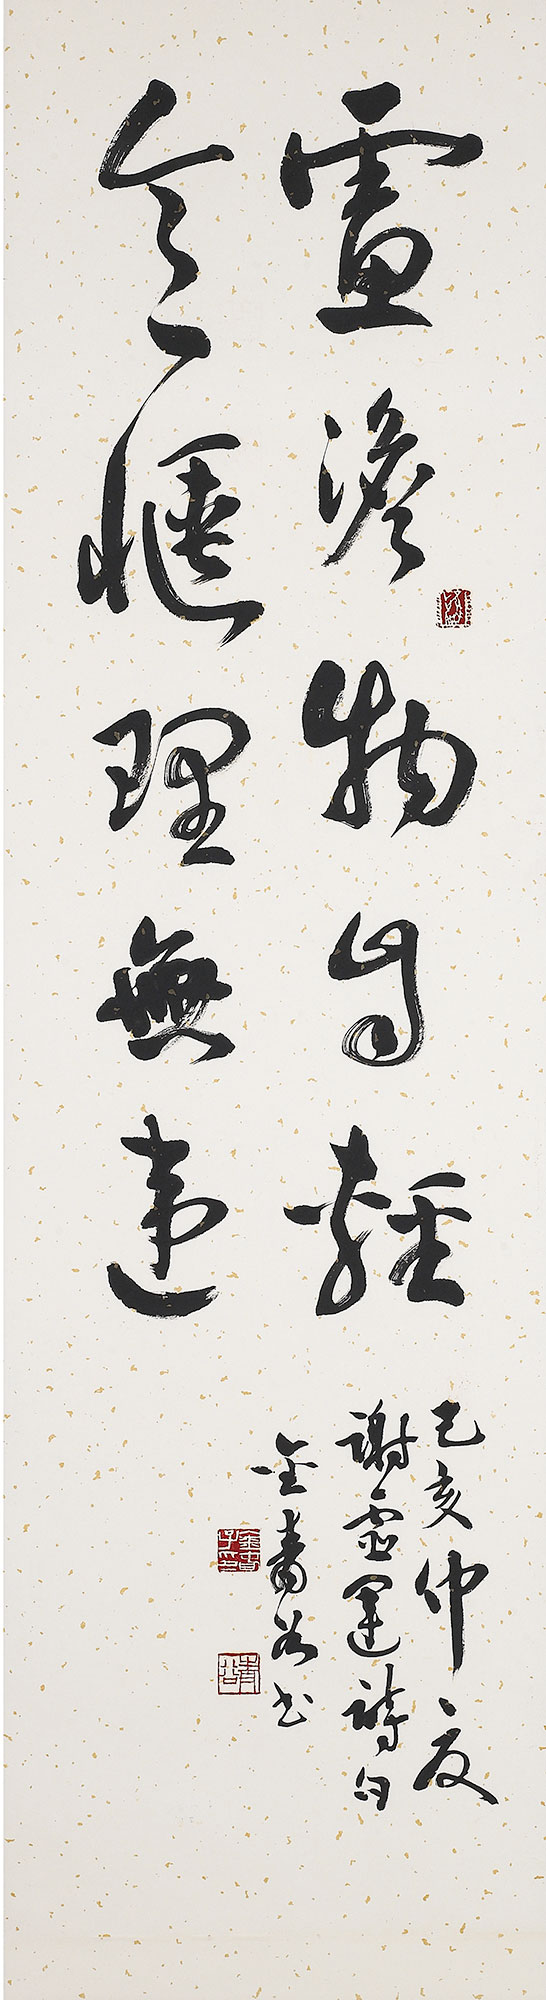 慮澹物自輕
意愜理無違
己亥仲夏
謝靈運詩句
金 谷書